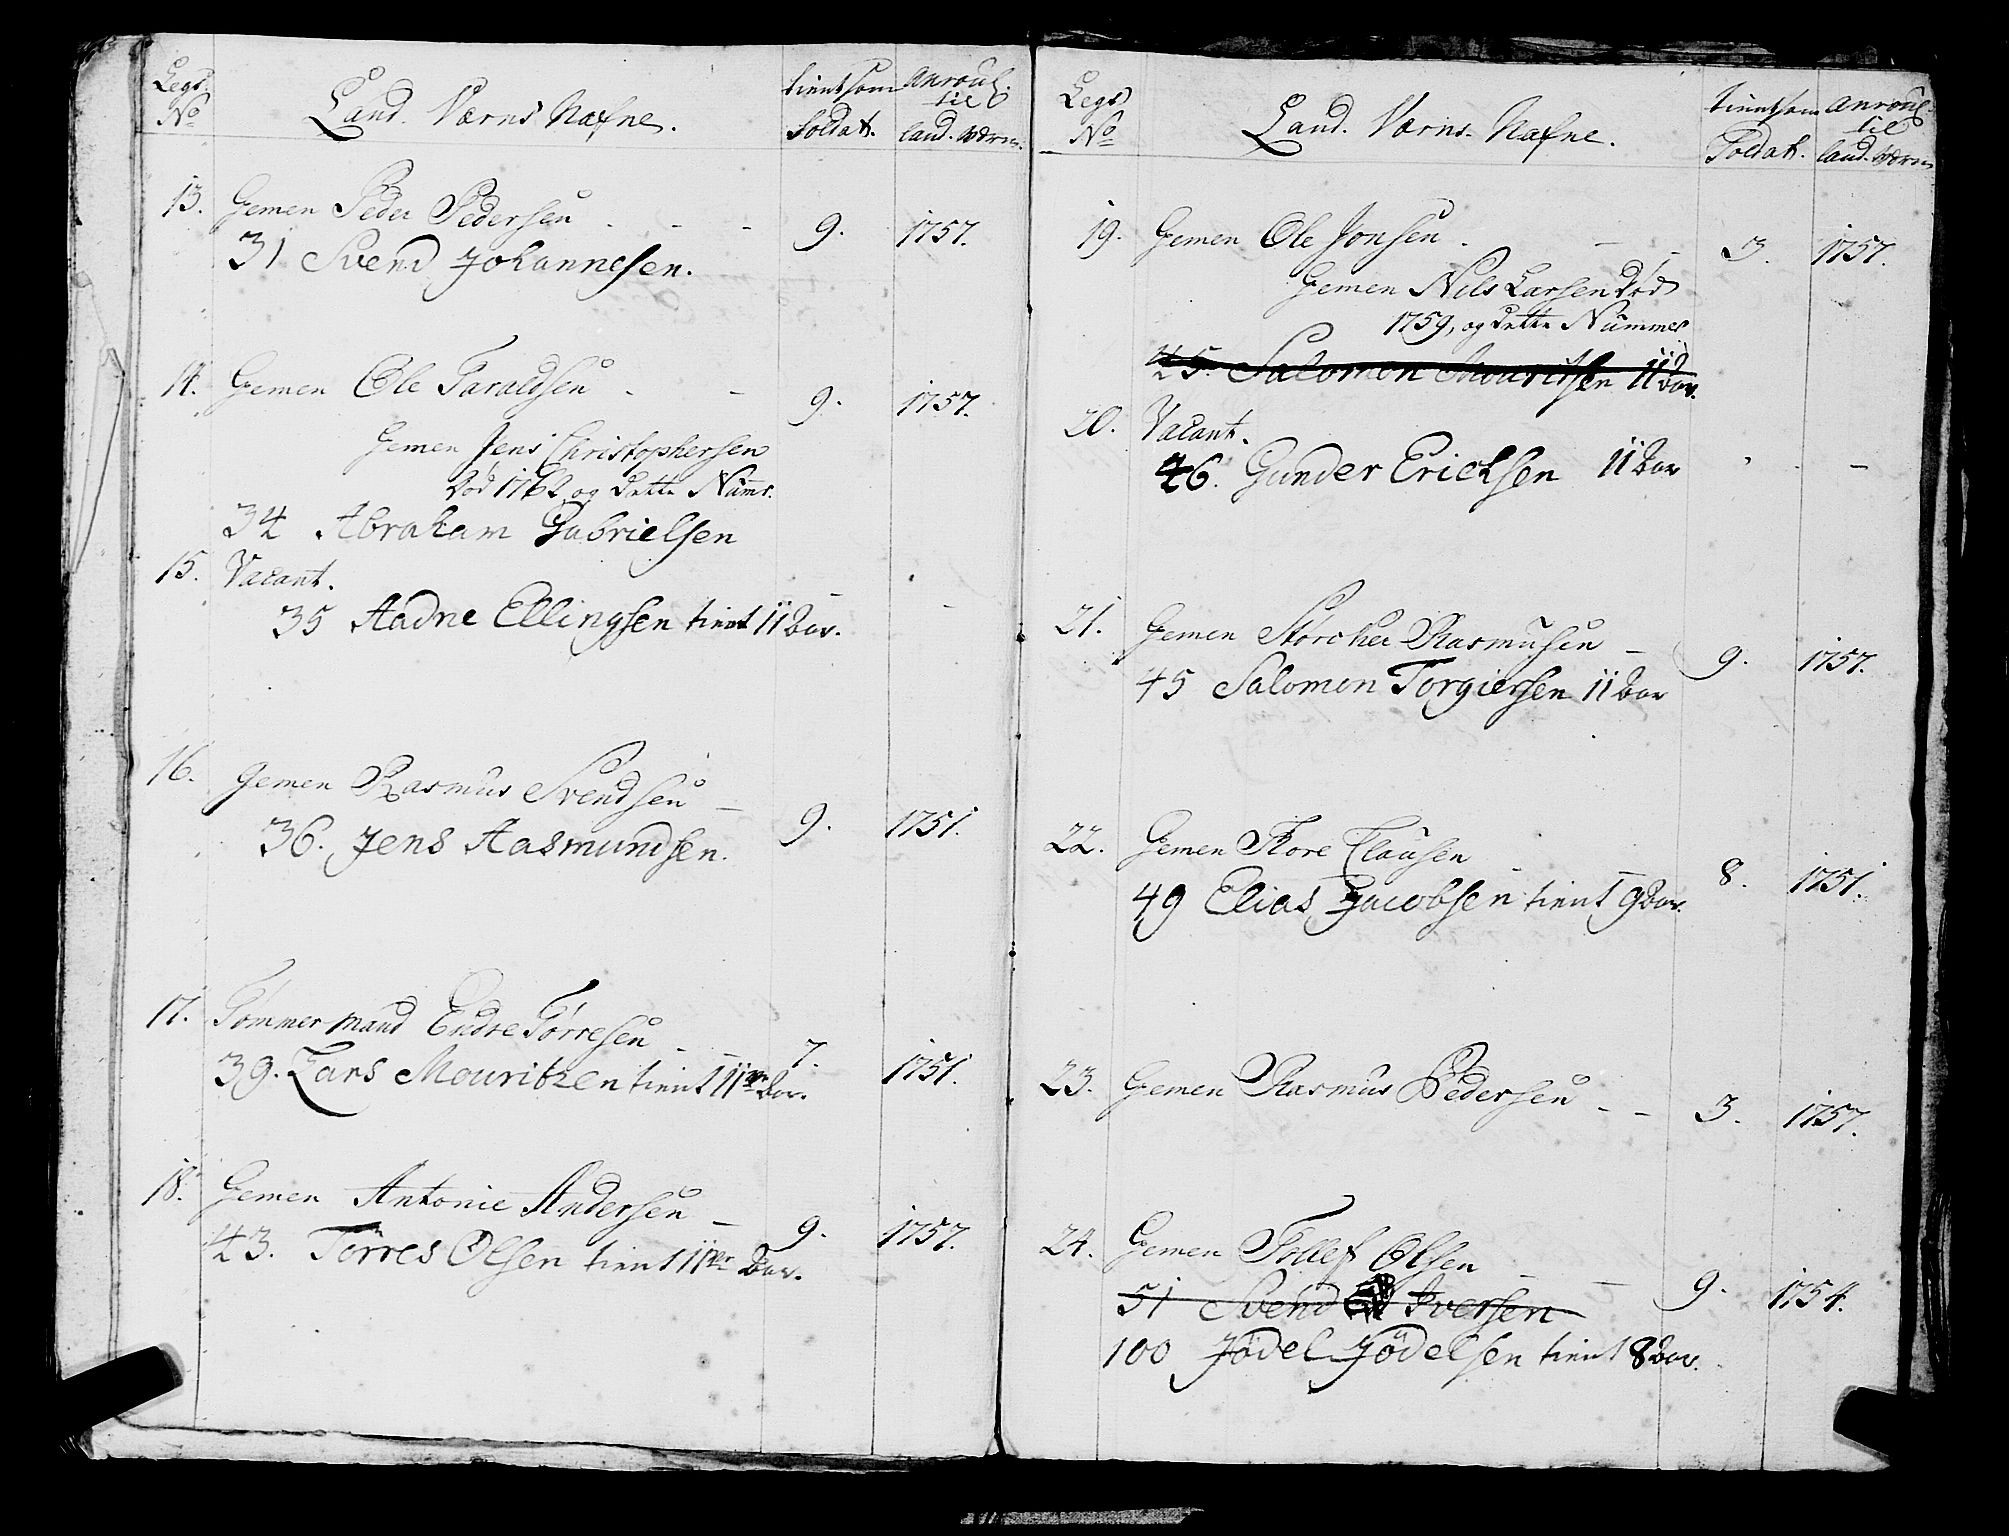 Legs No Land. Værns Nafne. tient som Soldat. anroul. til land. wærn.
13. Gemen Peder Pedersen . - - 9. 1757.
31 Svend Johannesen.
14. Gemen Ole Taraldsen - - 9. 1757.
Gemen Jens Christophersen
död 1762 og dette Numr.
34 Abraham Gabrielsen
15. Vacant. - -
35 Aadne Ellingsen tient 11 aar.
16. Gemen Rasmus Svendsen - 9. 1751.
36. Jens Aasmundsen.
17. Tømmermand Endre Törresen - - 7. 1751.
39. Lars Mouritzen tient 11 aar.
18. Gemen Antonie Andersen - 9. 1757.
43. Törres Olsen tient 11 aar.
Legs No Land. Værns. Nafne. tient som Soldat. anroul. til land. wærn
19. Gemen Ole Jonsen . - - 3. 1757.
Gemen Nils Larsen död
1759, og dette Nummer
45. Salomon Mouritsen 11 aar.
20. Vacant. - - -
46. Gunder Ericksen 11 aar
21. Gemen Storcker Rasmusen - 9. 1757.
45 Salomon Torgiersen 11 aar
22. Gemen Tore Clausen - - 8. 1751.
49 Elias Jacobsen tient 9 aar.
23. Gemen Rasmus Pedersen - - 3. 1757.
24. Gemen Tollef Olsen - - 9. 1754.
51 Svend Iversen
100 Jödel Jödelsen tient 8 aar.